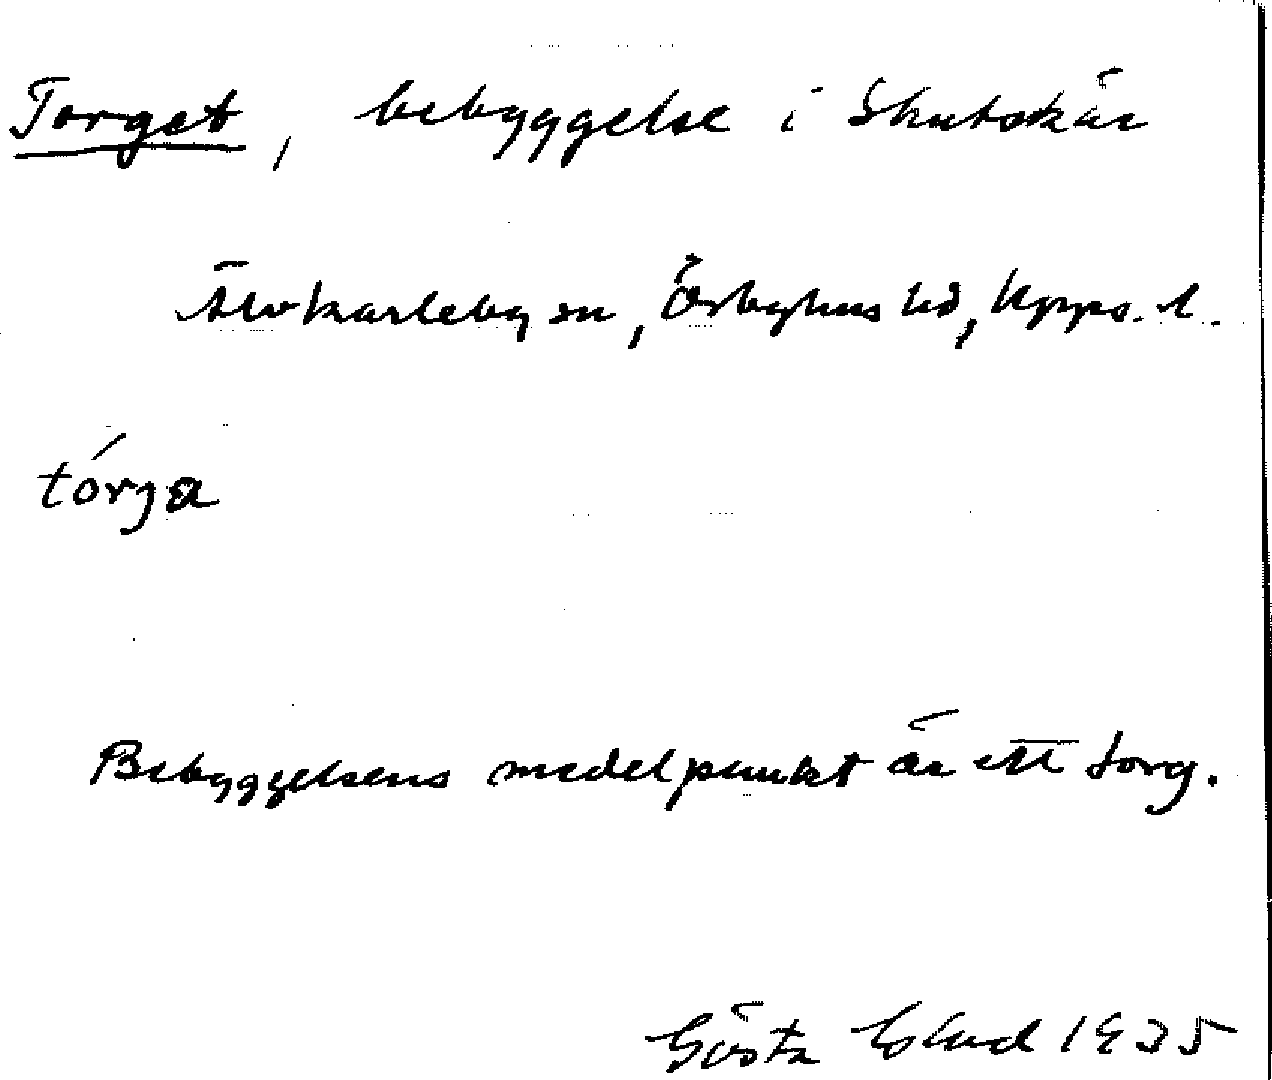 Torget, bebyggelse i Skutskär
Älvkarleby sn, Örbyhus hd, Upps. l.
tórja
Bebyggelsens medelpunkt är ett torg.
Gösta Eklund 1935